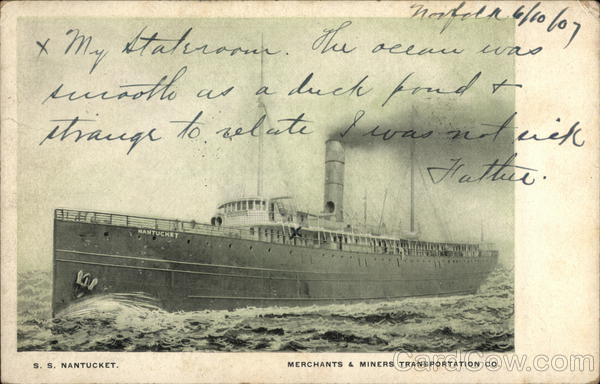 Norfolk 6/10/07
x My Stateroom. The ocean was
smooth as a duck pond &
strange to relate I was not sick
Father.
NANTUCKET
x
S. S. NANTUCKET. MERCHANTS & MINERS TRANSPORTATION CO.
CardCow.com